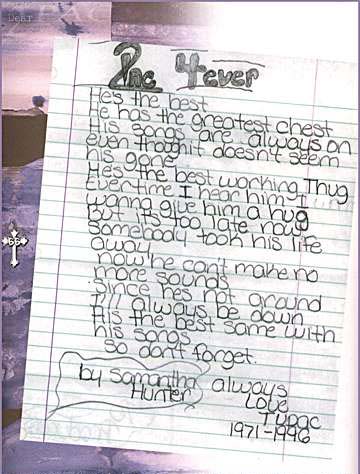 Dear
2Pac 4ever
He's the best
He has the greatest chest
His songs are always on
even though it doesn't seem
his gone
He's the best working Thug
Everytime I hear him I
wanna give him a hug
But its too late now
Somebody took his life
away
now he can't make no
more sounds
Since hes not ground
I'll always be down
His the best same with
his songs
so don't forget.
by Samantha Hunter
always
Love
Tupac
1971-1996
66